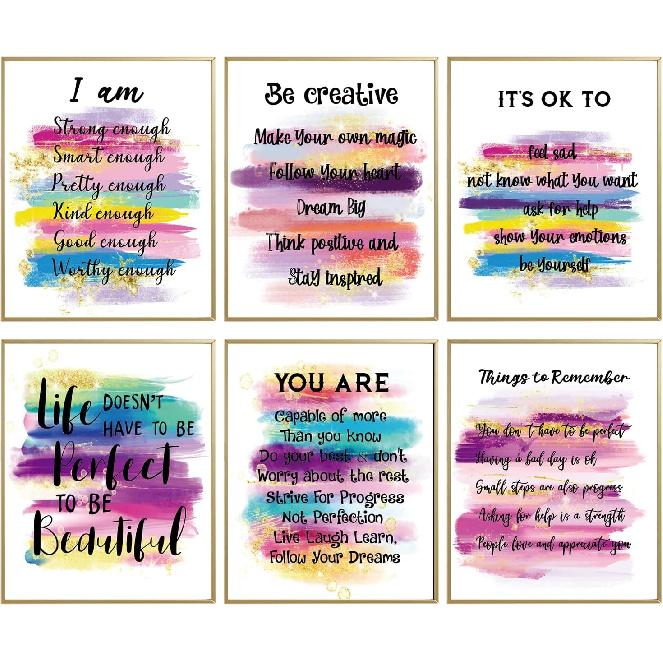 I am
Strong enough
Smart enough
Pretty enough
Kind enough
Good enough
Worthy enough
Be creative
Make Your own magic
Follow Your heart
Dream Big
Think positive and
Stay Inspired
IT'S OK TO
feel sad
not know what You want
ask for help
show Your emotions
be Yourself
Life DOESN'T
HAVE TO BE
Perfect
TO BE
Beautiful
YOU ARE
Capable of more
Than you know
Do your best & don't
Worry about the rest
Strive For Progress
Not Perfection
Live Laugh Learn,
Follow Your Dreams
Things to Remember
You don't have to be perfect
Having a bad day is ok
Small steps are also progress
Asking for help is a strength
People love and appreciate you